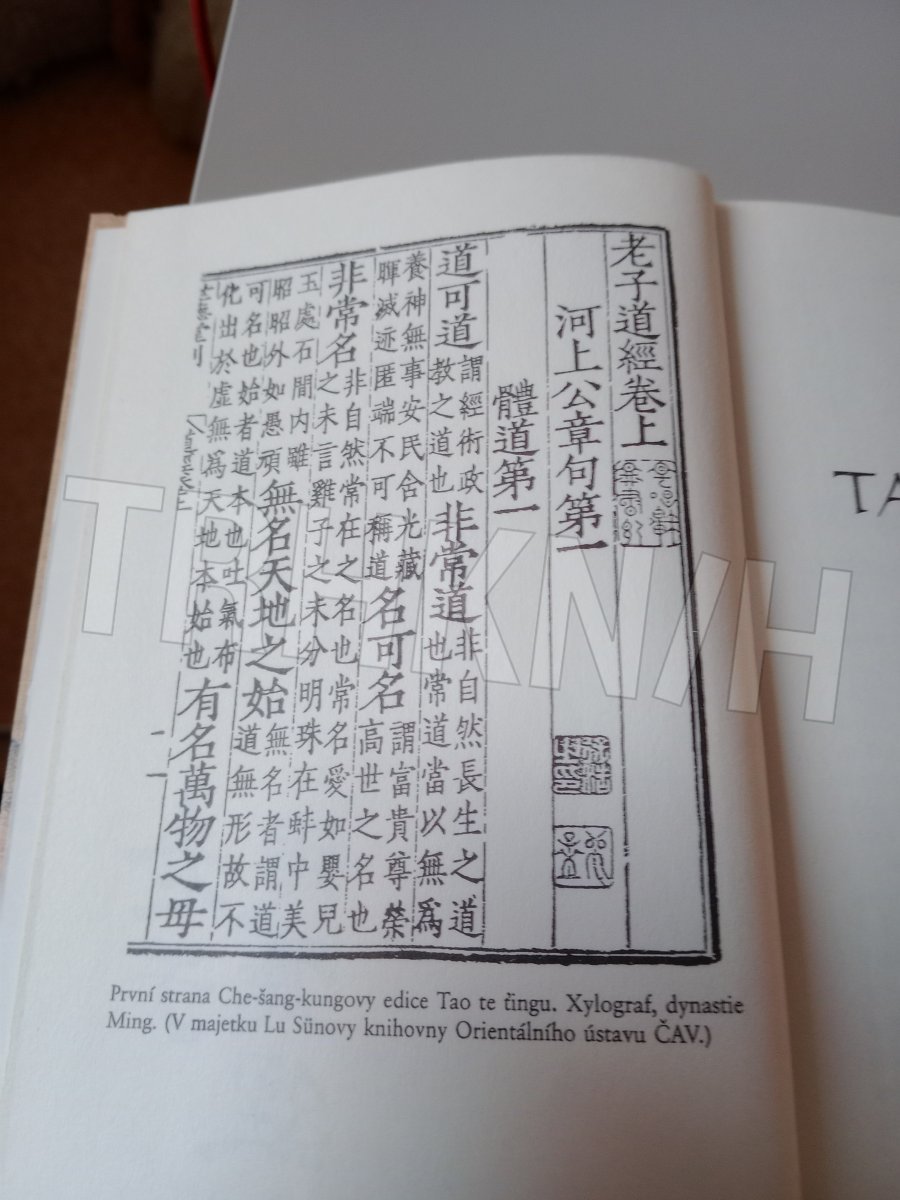 老子道經卷上
河上公章句第一
體道第一
道可道謂經術政教之道也非常道非自然長生之道也常道當以無爲
養神無事安民含光藏暉滅迹匿端不可稱道名可名謂富貴尊榮高世之名也
非常名非自然常在之名也常名愛如嬰兒之未言雞子之未分明珠在蚌中美
玉處石間内雖昭昭外如愚頑無名天地之始無名者謂道道無形故不
可名也始者道本也吐氣布化出於虛無爲天地本始也有名萬物之母
První strana Che-šang-kungovy edice Tao te ťingu. Xylograf, dynastie
Ming. (V majetku Lu Sünovy knihovny Orientálního ústavu ČAV.)
TA